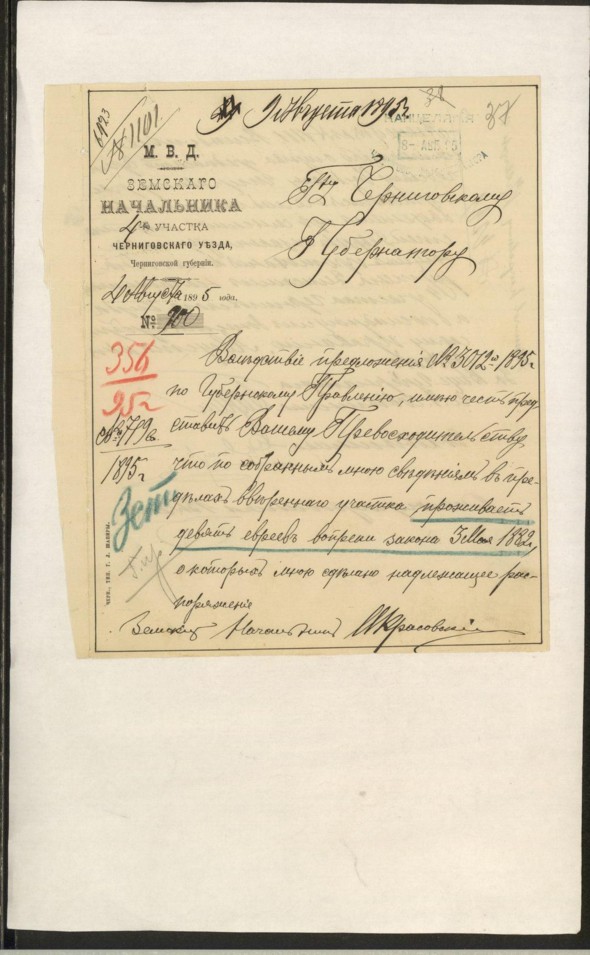 9 Августа 1895
38
37
КАНЦЕЛЯРІЯ
АВГ. 95
№ 1101
М. В. Д.
ЗЕМСКАГО
НАЧАЛЬНИКА
4го УЧАСТКА
ЧЕРНИГОВСКАГО УѢЗДА,
Черниговской губерніи.
4 Августа 1895 года.
№ 700
Гну Черниговскому
Губернатору
356
95 г
1895 г
Вслѣдствіе предложенія № 3012 1895 г
по Губернскому Правленію, имѣю честь пред-
ставить Вашему Превосходительству
что по собраннымъ мною свѣдѣніямъ въ пре-
дѣлахъ ввѣреннаго участка проживаетъ
девять евреевъ вопреки закона 3 Мая 1882 г,
о которыхъ мною сдѣлано надлежащее рас-
поряженіе
Земскій Начальникъ Красовскій
ЧЕРН., ТИП. Г. А.